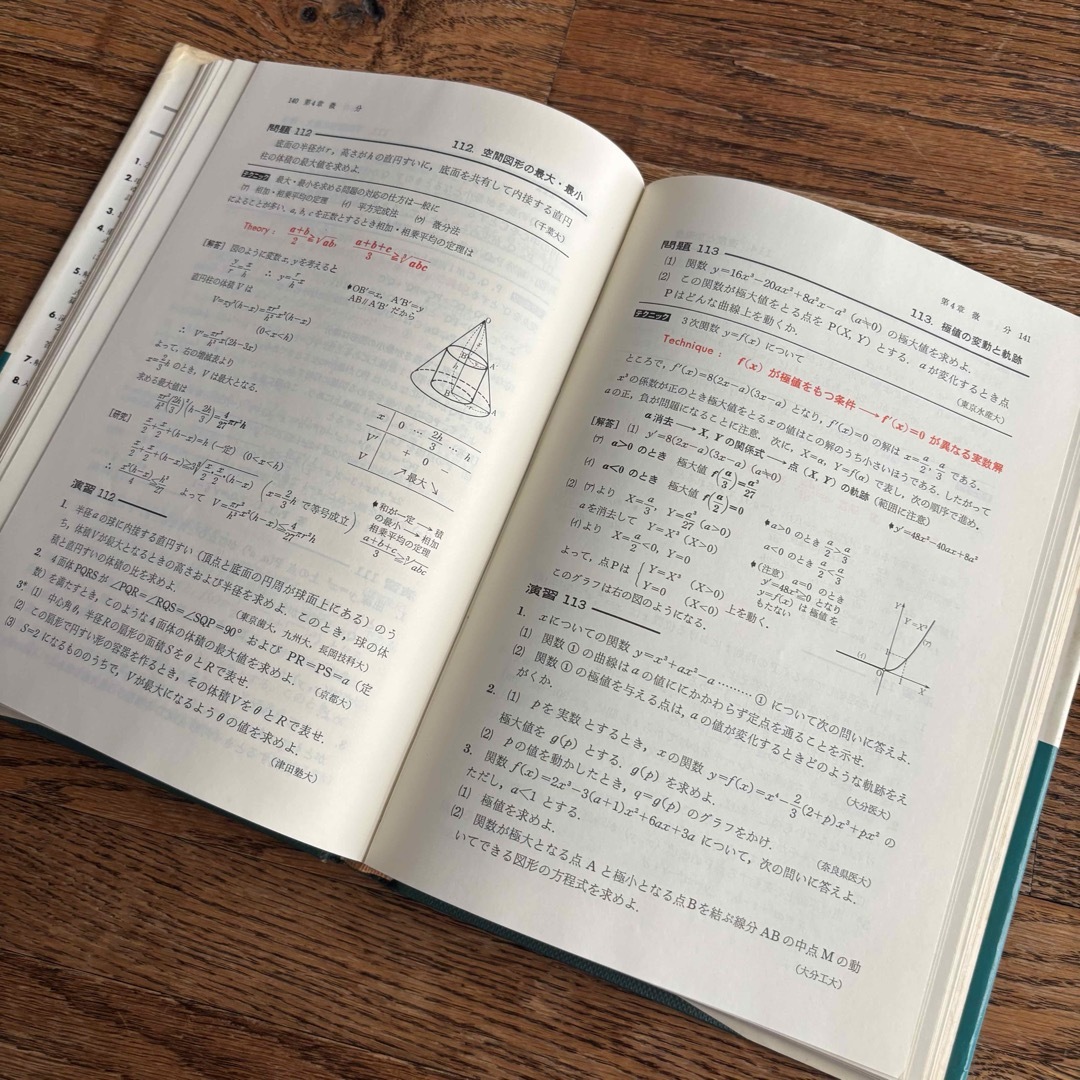 1.
2.
3.
4.
5.
6.
7.
8.
140 第4章 微 分
112. 空間図形の最大・最小
問題 112
底面の半径が r, 高さが h の直円すいに, 底面を共有して内接する直円
柱の体積の最大値を求めよ.
(千葉大)
テクニック 最大・最小を求める問題の対応の仕方は一般に
(ア) 相加・相乗平均の定理 (イ) 平方完成法 (ウ) 微分法
によることが多い. a, b, c を正数とするとき相加・相乗平均の定理は
Theory : (a+b)/2≧√ab, (a+b+c)/3≧³√abc
[解答] 図のように変数 x, y を考えると
y/r=x/h ∴ y=r/h x
♦OB'=x, A'B'=y
AB∥A'B' だから
直円柱の体積 V は
V=πy²(h−x)=πr²/h² x²(h−x)
(0<x<h)
∴ V'=πr²/h² x(2h−3x)
よって, 右の増減表より
x=2/3 h のとき, V は最大となる.
求める最大値は
πr²/h² (2h/3)²(h−2h/3)=4/27 πr²h
x 0 … 2h/3 … h
V' + 0 −
V ↗最大↘
[研究] x/2+x/2+(h−x)=h (一定) (0<x<h)
x/2+x/2+(h−x)≧3³√x/2・x/2・(h−x) (x=2/3 h で等号成立)
∴ x²(h−x)/4≦h³/27 よって V=πr²/h² x²(h−x)≦4/27 πr²h
♦和が一定→積
の最小→相加
相乗平均の定理
(a+b+c)/3≧³√abc
演習 112
1. 半径 a の球に内接する直円すい (頂点と底面の円周が球面上にある) のう
ち, 体積 V が最大となるときの高さおよび半径を求めよ. このとき, 球の体
積と直円すいの体積の比を求めよ.
(東京歯大, 九州大, 長岡技科大)
2. 4面体 PQRS が ∠PQR=∠RQS=∠SQP=90° および PR=PS=a (定
数) を満たすとき, このような4面体の体積の最大値を求めよ.
(京都大)
3* (1) 中心角 θ, 半径 R の扇形の面積 S を θ と R で表せ.
(2) この扇形で円すい形の容器を作るとき, その体積 V を θ と R で表せ.
(3) S=2 になるもののうちで, V が最大になるよう θ の値を求めよ.
(津田塾大)
第4章 微 分 141
113. 極値の変動と軌跡
問題 113
(1) 関数 y=16x³−20ax²+8a²x−a³ (a≠0) の極大値を求めよ.
(2) この関数が極大値をとる点を P(X, Y) とする. a が変化するとき点
P はどんな曲線上を動くか.
(東京水産大)
テクニック 3次関数 y=f(x) について
Technique : f(x) が極値をもつ条件 → f'(x)=0 が異なる実数解
ところで, f'(x)=8(2x−a)(3x−a) となり, f'(x)=0 の解は x=a/2, a/3 である.
x³ の係数が正のとき極大値をとる x の値はこの解のうち小さいほうである. したがって
a の正, 負が問題になることに注意. 次に, X=a, Y=f(a) で表し, 次の順序で進め.
a 消去→X, Y の関係式→点 (X, Y) の軌跡 (範囲に注意)
[解答] (1) y'=8(2x−a)(3x−a) (a≠0)
♦y'=48x²−40ax+8a²
(ア) a>0 のとき 極大値 f(a/3)=a³/27
♦a>0 のとき a/2>a/3
(イ) a<0 のとき 極大値 f(a/2)=0
a<0 のとき a/2<a/3
(2) (ア)より X=a/3, Y=a³/27 (a>0)
a を消去して Y=X³ (X>0)
♦(注意) a=0 のとき
y'=48x²≧0 となり
y=f(x) は極値を
もたない
(イ)より X=a/2<0, Y=0
よって, 点 P は { Y=X³ (X>0)
Y=0 (X<0) 上を動く.
このグラフは右の図のようになる.
演習 113
1. x についての関数 y=x³+ax²−a ……… ① について次の問いに答えよ.
(1) 関数 ① の曲線は a の値ににかかわらず定点を通ることを示せ.
(2) 関数 ① の極値を与える点は, a の値が変化するときどのような軌跡をえ
がくか.
(大分医大)
2. (1) p を実数とするとき, x の関数 y=f(x)=x⁴−2/3(2+p)x³+px² の
極大値を g(p) とする. g(p) を求めよ.
(2) p の値を動かしたとき, q=g(p) のグラフをかけ.
(奈良県医大)
3. 関数 f(x)=2x³−3(a+1)x²+6ax+3a について, 次の問いに答えよ.
ただし, a<1 とする.
(1) 極値を求めよ.
(2) 関数が極大となる点 A と極小となる点 B を結ぶ線分 AB の中点 M の動
いてできる図形の方程式を求めよ.
(大分工大)